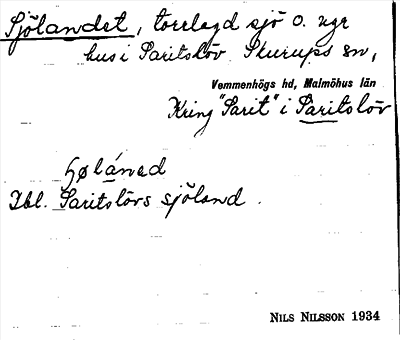 Sjölandet, torrlagd sjö o. ngr
hus i Saritslöv Skurups sn,
Vemmenhögs hd, Malmöhus län
Kring "Sarit" i Saritslöv
Ibl. Saritslövs sjöland.
NILS NILSSON 1934